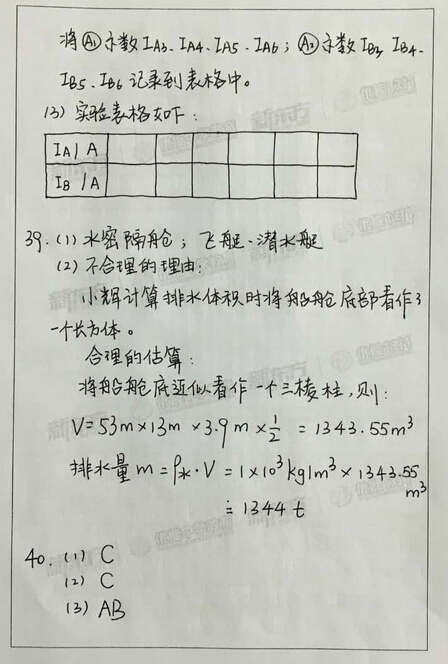 将Ⓐ₁示数IA3、IA4、IA5、IA6；Ⓐ₂示数IB3、IB4、
IB5、IB6记录到表格中。
(3) 实验表格如下：
IA / A
IB / A
39. (1) 水密隔舱；飞艇、潜水艇
(2) 不合理的理由：
小辉计算排水体积时将船舱底部看作了
一个长方体。
合理的估算：
将船舱底近似看作一个三棱柱，则：
V=53m×13m×3.9m×1/2 = 1343.55m³
排水量m=ρ水·V=1×10³kg/m³×1343.55m³
≐1344 t
40. (1) C
(2) C
(3) AB